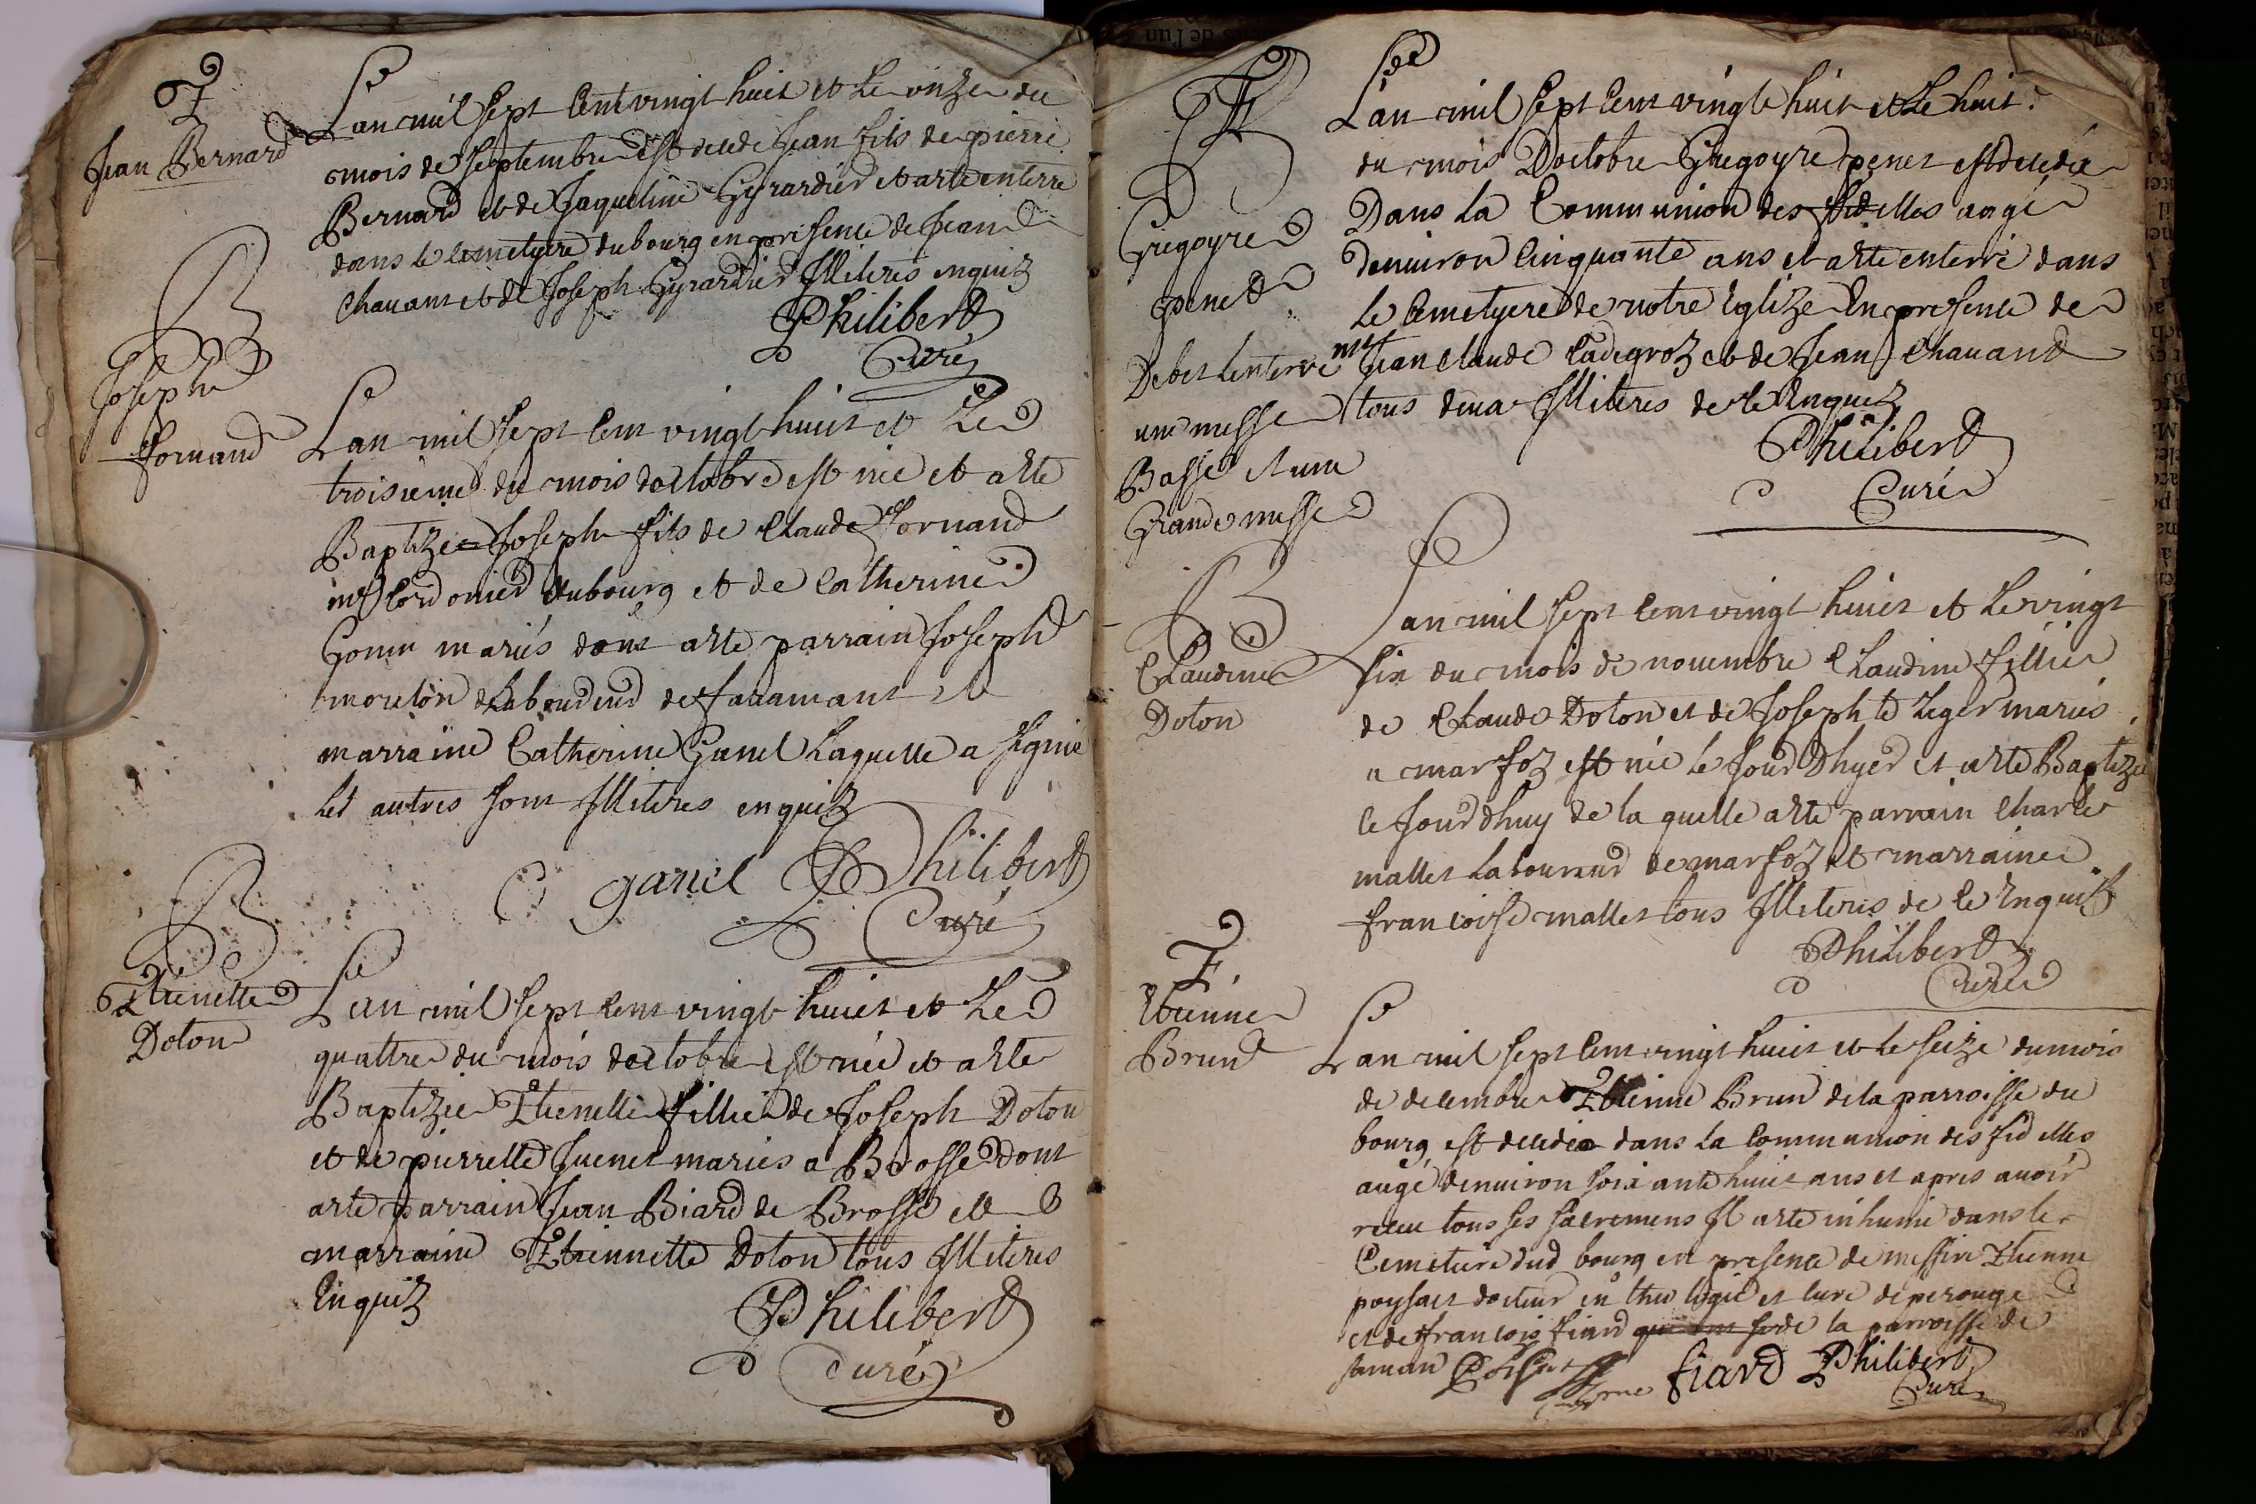 Jean Bernard
Lan mil sept cent vingt huict et le onze du
mois de septembre est decede Jean fils de pierre
Bernard et de Jaqueline Gyrardier et a ete enterre
dans le cemetyere du bourg en presence de Jean
Chauant et de Joseph Gyrardier Illiteres enquiz
Philibert
Curé
B
Joseph
Fornand
Lan mil sept cent vingt huict et le
troisieme du mois doctobre est nie et a ete
Baptizé Joseph fils de Claude Fornand
me cordonier du bourg et de Catherine
Gonin mariés dont a ete parrain Joseph
mouton de faramant et
marraine Catherine Gariel laquelle a signié
les autres sont Illiteres enquiz
gariel Philibert
Curé
B
Etiennette
Doton
Lan mil sept cent vingt huict et le
quattre du mois doctobre est nié et a ete
Baptizée Etienette fillie de Joseph Doton
et de pierrette Juenet mariés a Brosse dont
a ete parrain Jean Biard de Brosse et
marraine Etiennette Doton tous Illiteres
Enquiz
Philibert
curé
Gregoyre
penet
Debet lenterre met
une messe
Basse et une
Grande messe
Lan mil sept cent vingt huit et le huit
du mois Doctobre Gregoyre penet est decedé
Dans la Communion des fidelles aagé
denuiron Cinquante ans et a ete enterré dans
le Cemetyere de notre Eglize En presence de
Jean Claude Cadegroz et de Jean Chauand
tous deux Illiteres de ce Enquiz
Philibert
Curé
B
Claudine
Doton
Lan mil sept cent vingt huict et le vingt
six du mois de nouembre Claudine fillie
de Claude Doton et de Josephte Leger mariés
a marfoz est nié le Jour Dhyer et a ete Baptizé
ce Jourdhuy de la quelle a ete parrain Charle
mallet laboureur de marfoz et marraine
francoise mallet tous Illiteres de ce Enquis
Philibert
Curé
Etienne
Brun
Lan mil sept cent vingt huict et le seize du mois
de decembre Etienne Brun de la parroisse du
bourg est decedé dans la Communion des fidelles
augé denuiron soixante huict ans et apres auoir
receu tous ses sacremens Il a ete inhumé dans le
Cemetiere dud bourg en presence de messire Etienne
poysat docteur en theologie et curé de perouge
et de francois fiard de la parroisse de
fiard Philibert
Curé